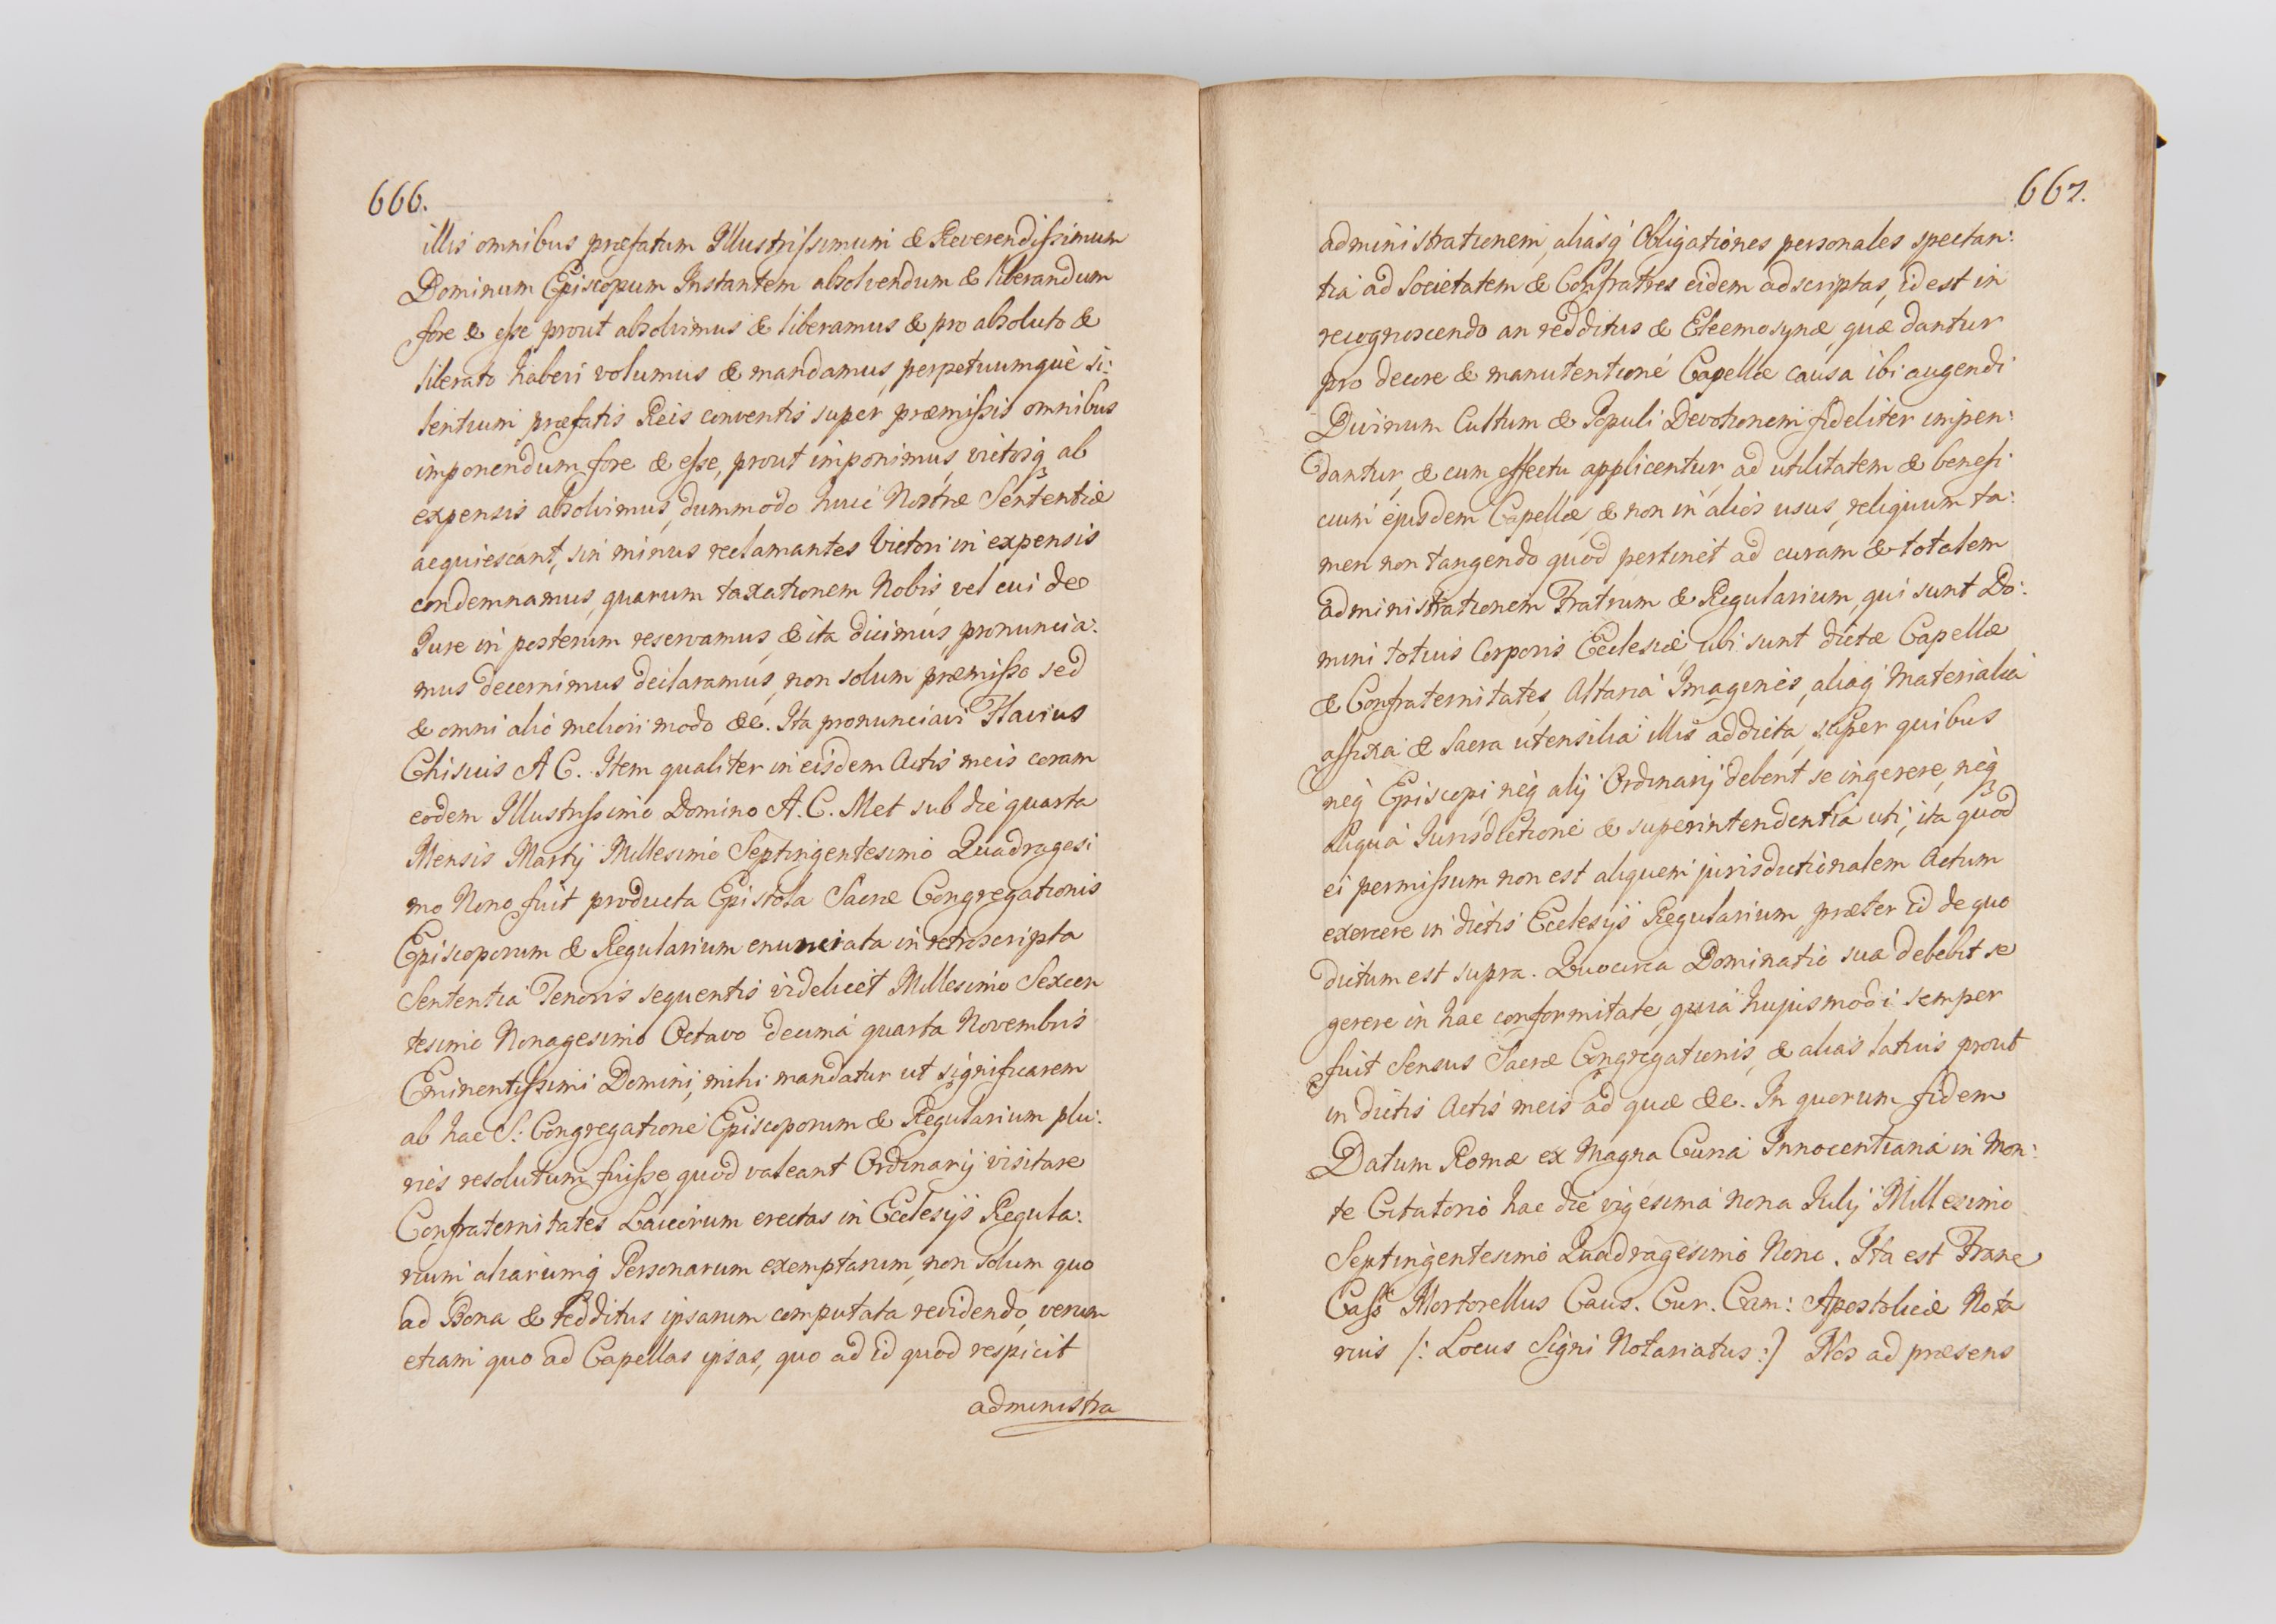 666.
illis omnibus præfatum Illustrissimum & Reverendissimum
Dominum Episcopum Instantem absolvendum & liberandum
fore & esse prout absolvimus & liberamus & pro absoluto &
liberato haberi volumus & mandamus, perpetuumquè si:
lentium præfatis Reis conventis super præmissis omnibus
imponendum fore & esse, prout imponimus, victosq́ ab
expensis absolvimus, dummodo huic Nostræ Sententiæ
acquiescant, sin minus reclamantes Victori in expensis
condemnamus, quarum taxationem Nobis, vel cui de
Jure in posterum reservamus, & ita dicimus, pronuncia:
mus decernimus declaramus, non solum præmisso sed
& omni alio meliori modo &c. Ita pronunciavi Flavius
Chisius A C. Item qualiter in eisdem Actis meis coram
eodem Illustrissimo Domino A. C. Met sub die quarta
Mensis Martij Millesimo Septingentesimo Quadragesi
mo Nono fuit producta Epistola Sacræ Congregationis
Episcoporum & Regularium enunciata in retroscripta
Sententia Tenoris sequentis videlicet Millesimo Sexcen
tesimo Nonagesimo Octavo decima quarta Novembris
Eminentissimi Domini, mihi mandatur ut significarem
ab hac S: Congregatione Episcoporum & Regularium plu:
ries resolutum fuisse, quod valeant Ordinarij visitare
Confraternitates Laicorum erectas in Ecclesijs Regula:
rium aliarumq́ Personarum exemptarum, non solum quo
ad Bona & redditus ipsarum computata revidendo, verum
etiam quo ad Capellas ipsas, quo ad id quod respicit
administra
667.
administrationem, aliasq́ Obligationes personales spectan:
tia ad Societatem & Confratres eidem adscriptas, id est in
recognoscendo an redditus & Eleemosynæ, quæ dantur
pro decore & manutentione Capellæ causa ibi augendi
Divinum Cultum & Populi Devotionem fideliter impen:
dantur, & cum effectu applicentur, ad utilitatem & benefi
cium ejusdem Capellæ & non in alios usus, reliquum ta:
men non tangendo quod pertinet ad curam & totalem
administrationem Fratrum & Regularium, qui sunt Do:
mini totius Corporis Ecclesiæ ubi sunt dictæ Capellæ
& Confraternitates, Altaria Imagines, aliaq́ Materialia
affixa & Sacra utensilia illis addicta, super quibus
neq́ Episcopi, neq́ alij Ordinarij debent se ingerere, neq́
aliqua Jurisdictione & superintendentia uti, ita quod
ei permissum non est aliquem jurisdictionalem Actum
exercere in dictis Ecclesijs Regularium præter id de quo
dictum est supra. Quocirca Dominatio sua debebit se
gerere in hac conformitate, quia hujusmodi semper
fuit Sensus Sacræ Congregationis, & alias latius prout
in dictis Actis meis ad quæ &c. In quorum fidem
Datum Romæ ex Magna Curia Innocentiana in Mon:
te Citatorio hac die vigesima nona Julij Millesimo
Septingentesimo Quadragesimo Nono. Ita est Franc
Cass Mortorellus Caus. Cur. Cam: Apostolicæ Nota
rius /: Locus Signi Notariatus :/ Nos ad præsens